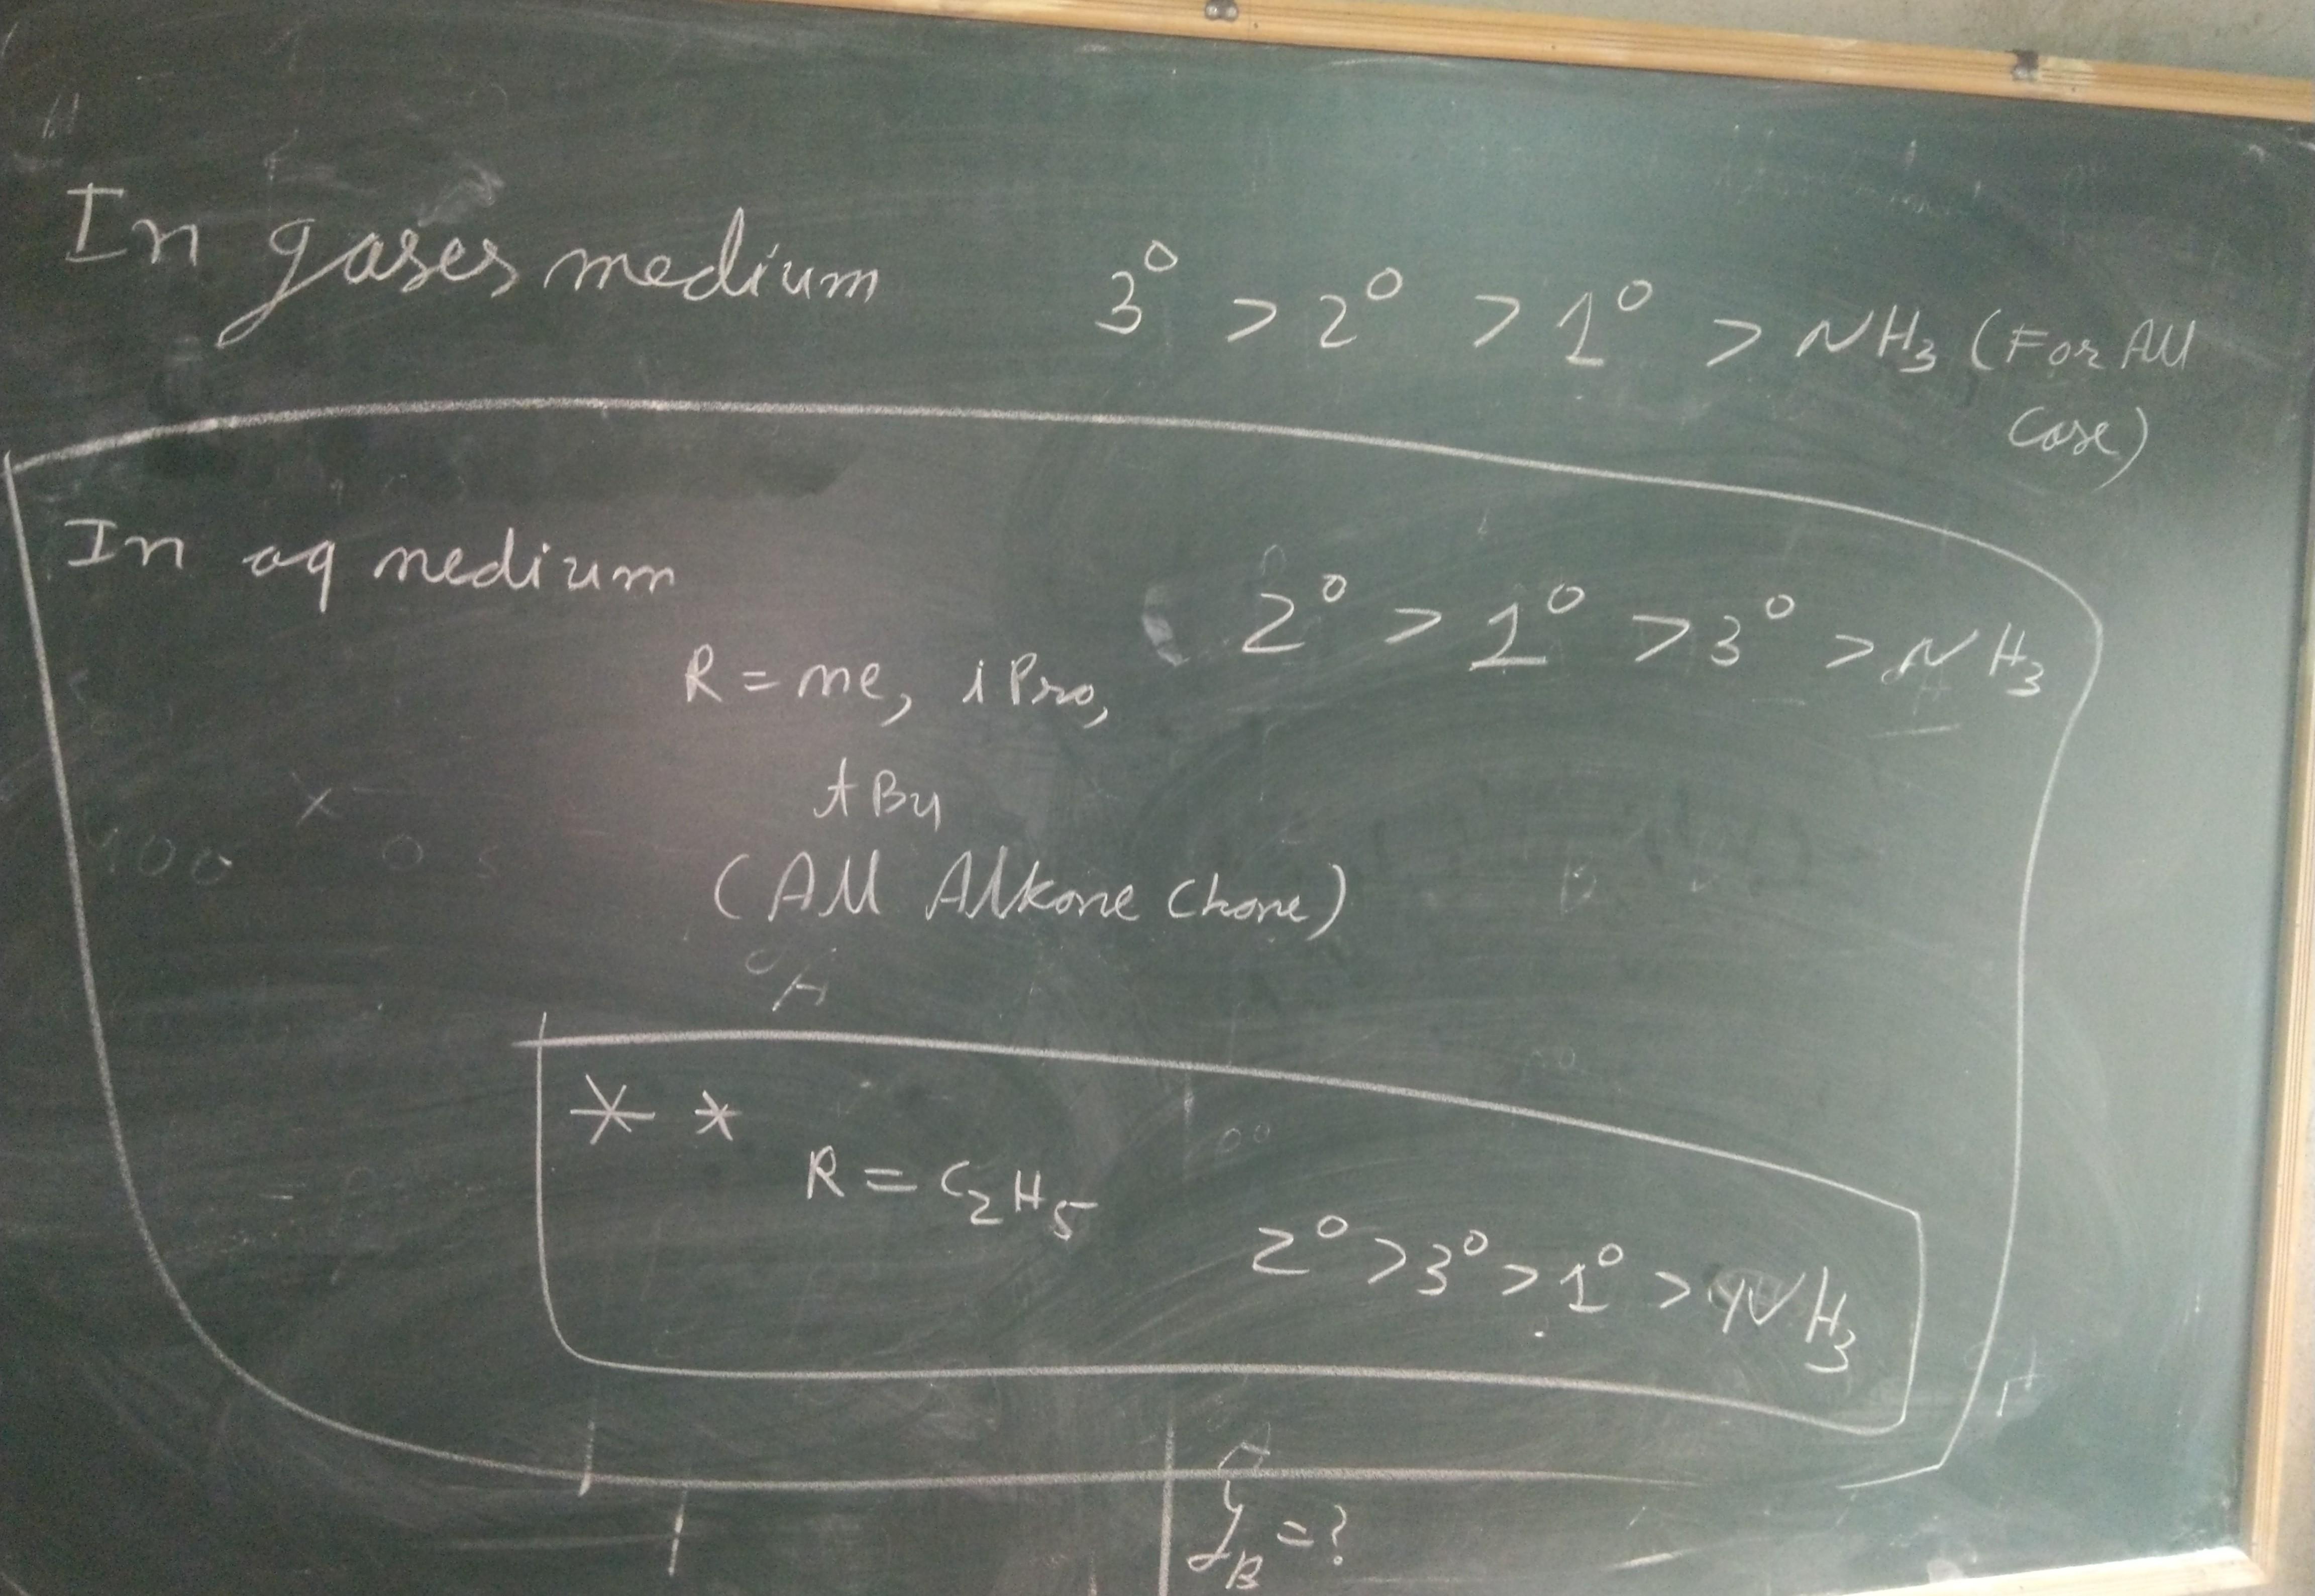 In gases medium 3° > 2° > 1° > NH3 (For All
Case)
In aq medium 2° > 1° > 3° > NH3
R = me, iPro,
tBu
(All Alkane Chane)
** R = C2H5
2° > 3° > 1° > NH3
yB = ?